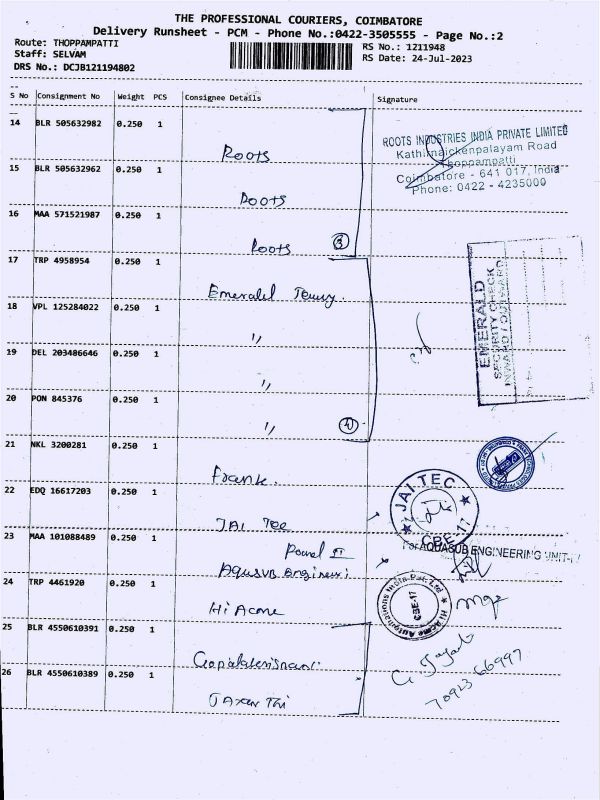 THE PROFESSIONAL COURIERS, COIMBATORE
Delivery Runsheet - PCM - Phone No.:0422-3505555 - Page No.:2
Route: THOPPAMPATTI
Staff: SELVAM
DRS No.: DCJB121194802
RS No.: 1211948
RS Date: 24-Jul-2023
S No Consignment No Weight PCS Consignee Details Signature
14 BLR 505632982 0.250 1
Roots
15 BLR 505632962 0.250 1
Roots
16 MAA 571521987 0.250 1
Roots 3
ROOTS INDUSTRIES INDIA PRIVATE LIMITED
Kathirnaickenpalayam Road
Thoppampatti
Coimbatore - 641 017, India
Phone: 0422 - 4235000
17 TRP 4958954 0.250 1
18 VPL 125284022 0.250 1
"
19 DEL 203486646 0.250 1
"
20 PON 845376 0.250 1
" 4
EMERALD
SECURITY CHECK
INWARD / OUTWARD
21 NKL 3200281 0.250 1
Frank.
22 EDQ 16617203 0.250 1
JAI TEC
JAI TEC
CBE-17
23 MAA 101088489 0.250 1
For AQUASUB ENGINEERING UNIT-
24 TRP 4461920 0.250 1
Hi Acme
Hi Acme Automations India Pvt. Ltd
CBE-17
25 BLR 4550610391 0.250 1
Gopalakrishnan.
26 BLR 4550610389 0.250 1
Jayanthi
70923 66997